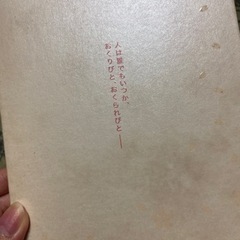 人は誰でもいつか、
おくりびと、おくられびと――